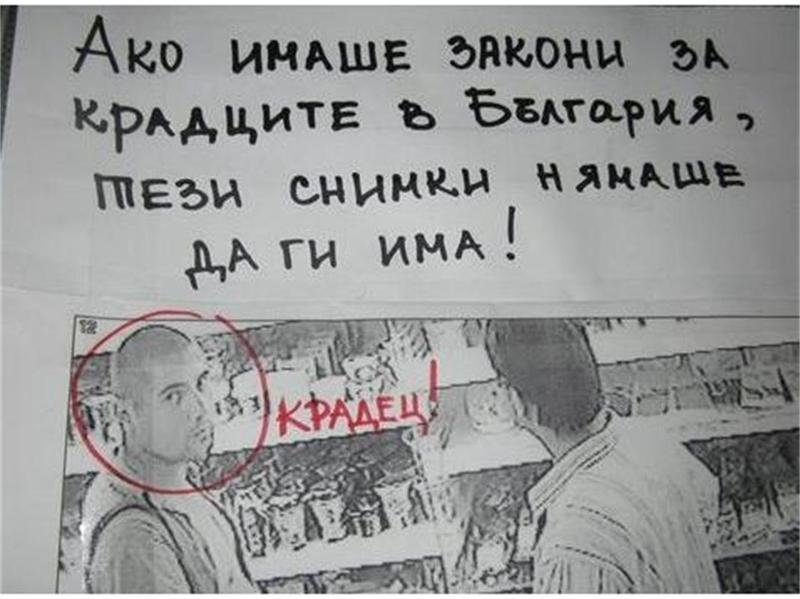 Ако имаше закони за
крадците в България,
тези снимки нямаше
да ги има!
12
КРАДЕЦ!